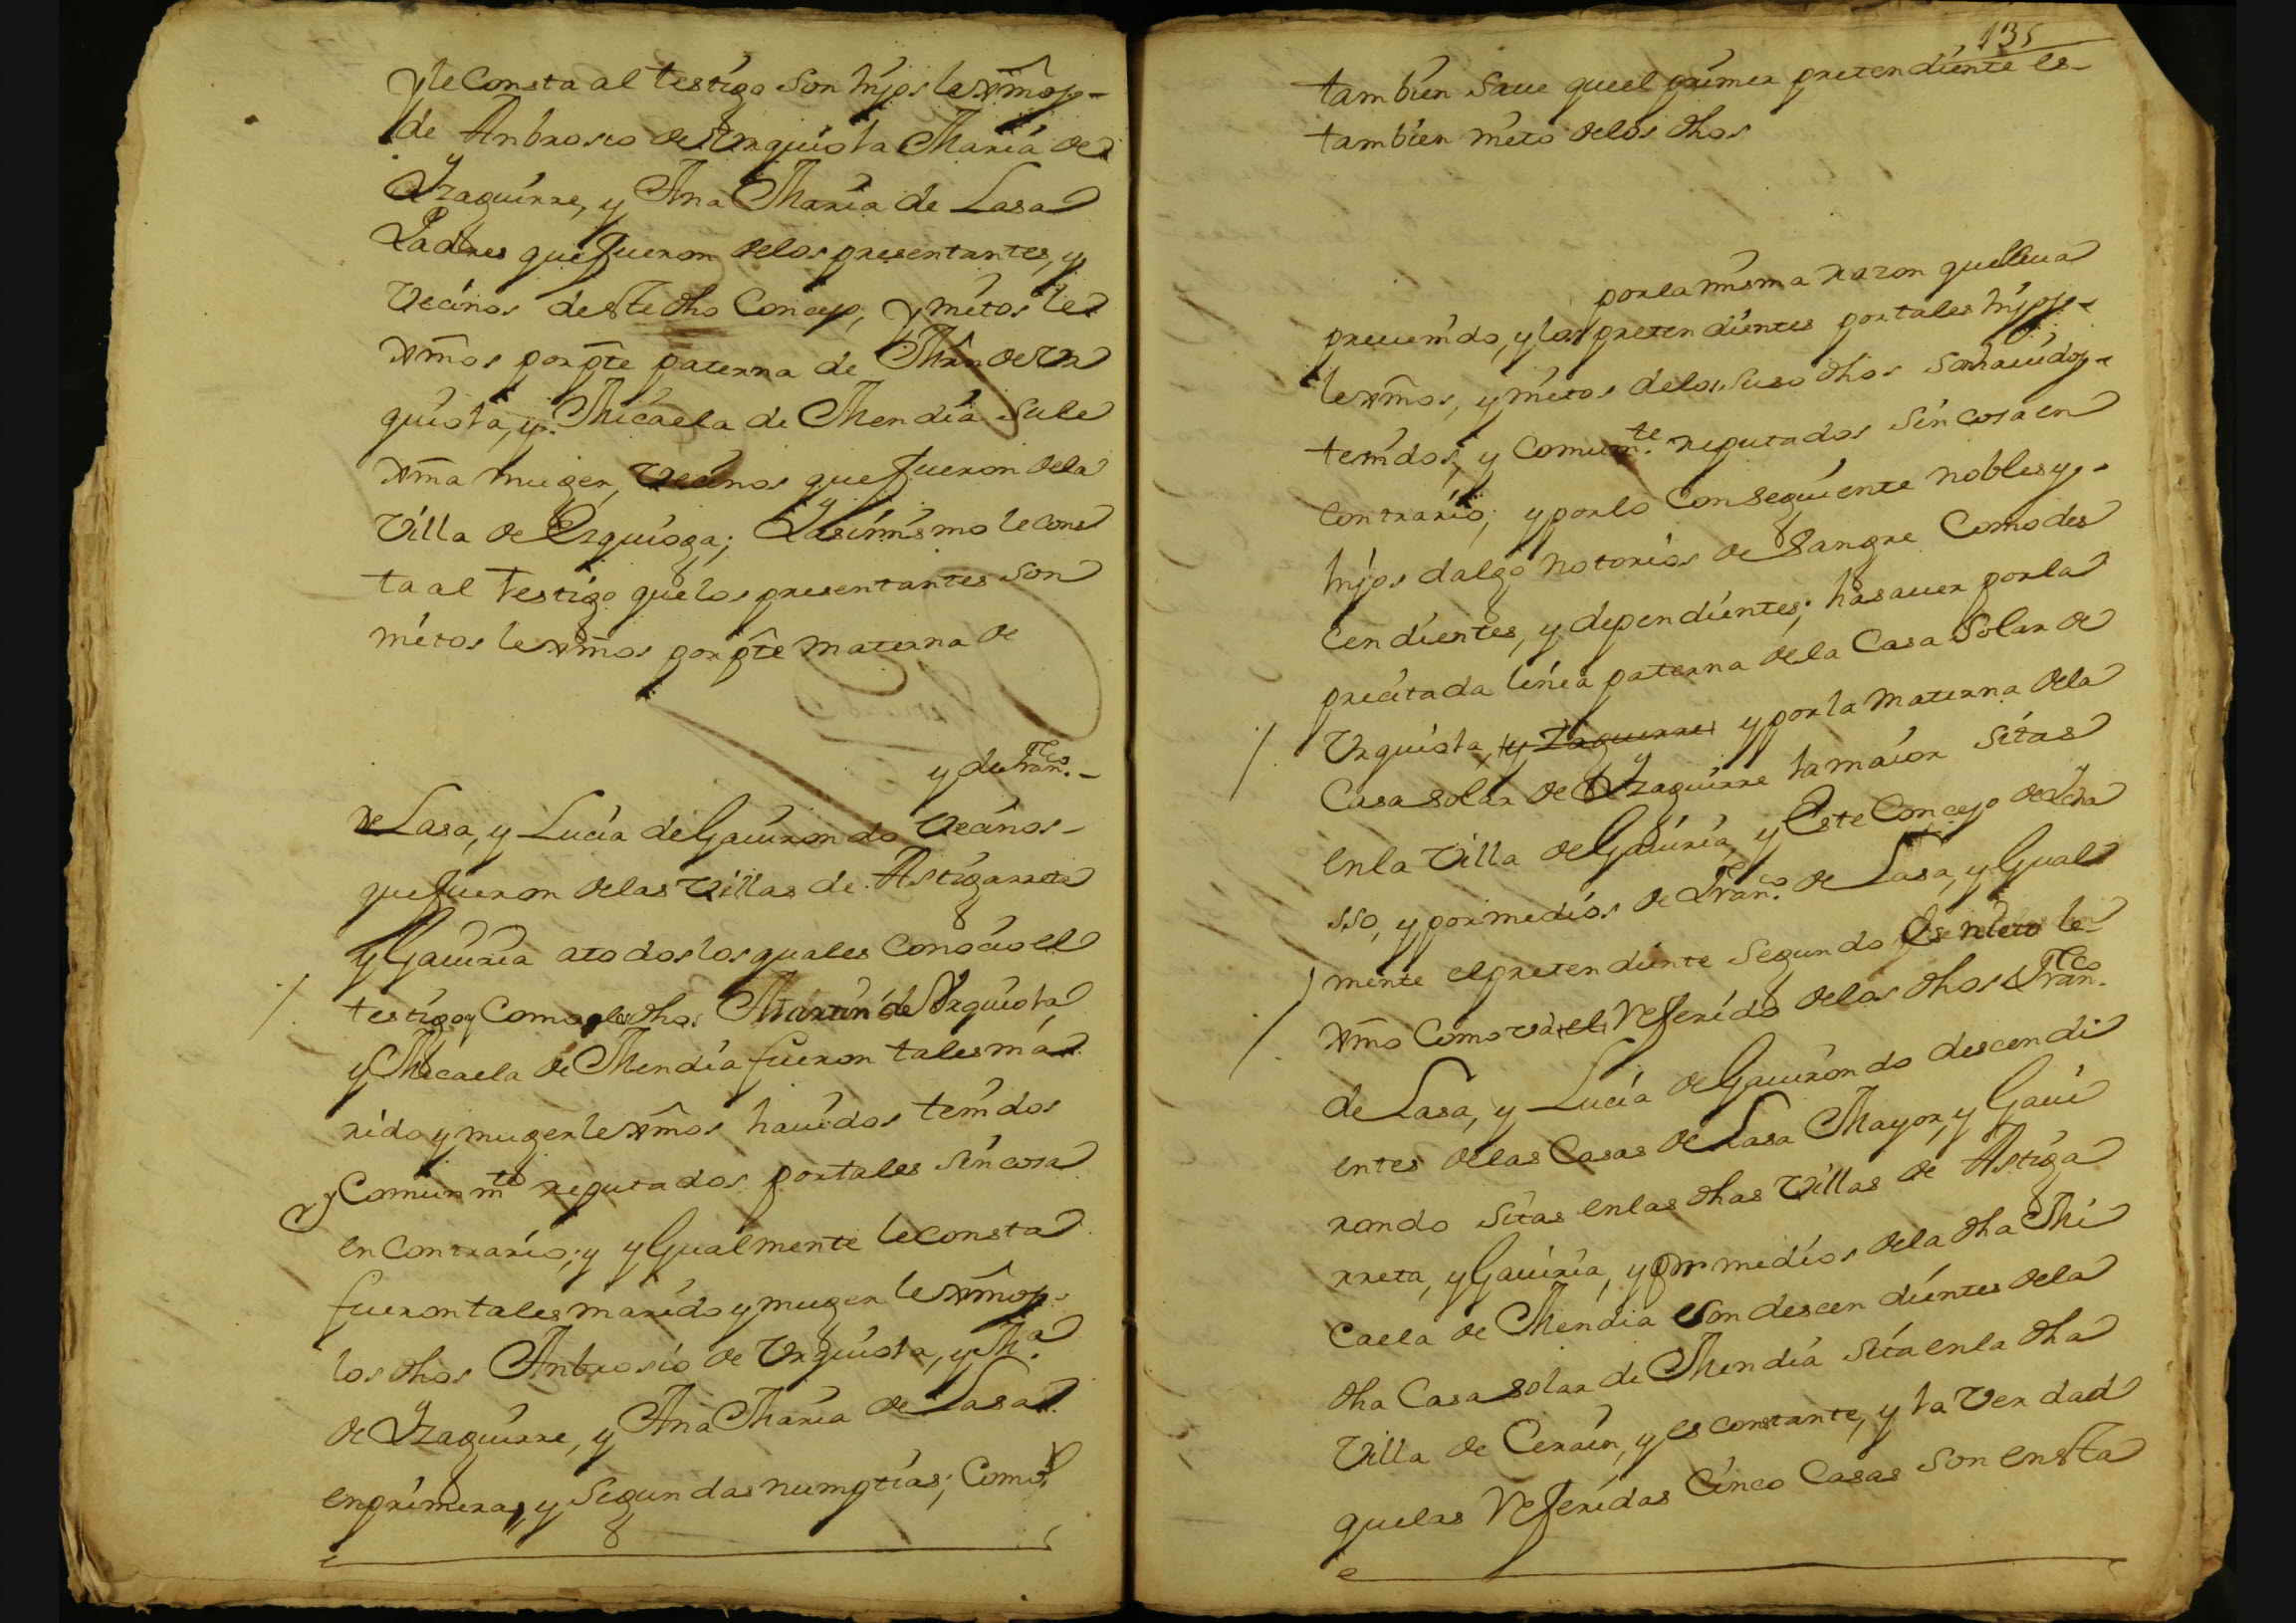 y le Consta al testigo son hijos lexmos
de Anbrosio de Urquiola Maria de
Yzaguirre, y Ana Maria de Lasa
Padres que fueron de los presentantes, y
Vecinos deste dho Concejo, y nietos le
xmos por pte paterna de Mrn de Ur
quiola, y Micaela de Mendia su le
xma muger, Vecinos que fueron de la
Villa de Ezquioga; y asimismo le cons
ta al testigo que los presentantes son
nietos lexmos por pte materna de
y de Franco.
de Lasa, y Lucia de Gauirondo Vecinos
que fueron de las Villas de Astigarreta
y Gauiria a todos los quales conocio el
testigo y Como los dhos Martin de Urquiola
y Micaela de Mendia fueron tales ma
rido y muger lexmos hauidos tenidos
y Comunmte reputados por tales sin cosa
en Contrario; y yGualmente le consta
fueron tales marido y muger lexmos
los dhos Anbrosio de Urquiola, y Ma
de Yzaguirre, y Ana Maria de Lasa
en primeras, y Segundas numptias; Como
135
tambien Saue que el primer pretendiente es
tambien nieto de los dhos
por la misma razon que lleua
preuenido, y los pretendientes por tales hijos
lexmos, y nietos de los suso dhos son hauidos
tenidos, y Comunmte. reputados sin cosa en
Contrario; y por lo Conseguiente nobles y
hijos dalgo notorios de Sangre Como des
cendientes, y dependientes; ha sauer por la
precitada linea paterna de la Casa Solar de
Urquiola, y Yzaguirre y por la materna de la
Casa solar de Yzaguirre la maior Sitas
en la Villa de Gauiria, y Este Concejo de Ycha
sso, y por medios de Franco. de Lasa, y Gual
mente el pretendiente Segundo es nieto le
xmo Como va el Referido de los dhos Franco.
de Lasa, y Lucia de Gauirondo descendi
entes de las Casas de Lasa Mayor, y Gaui
rondo Sitas en las dhas Villas de Astiga
rreta, y Gauiria, y por medios de la dha Mi
caela de Mendia son descendientes de la
dha Casa solar de Mendia Sita en la dha
Villa de Cerain, y es constante, y la Verdad
que las Referidas Cinco Casas son en sta